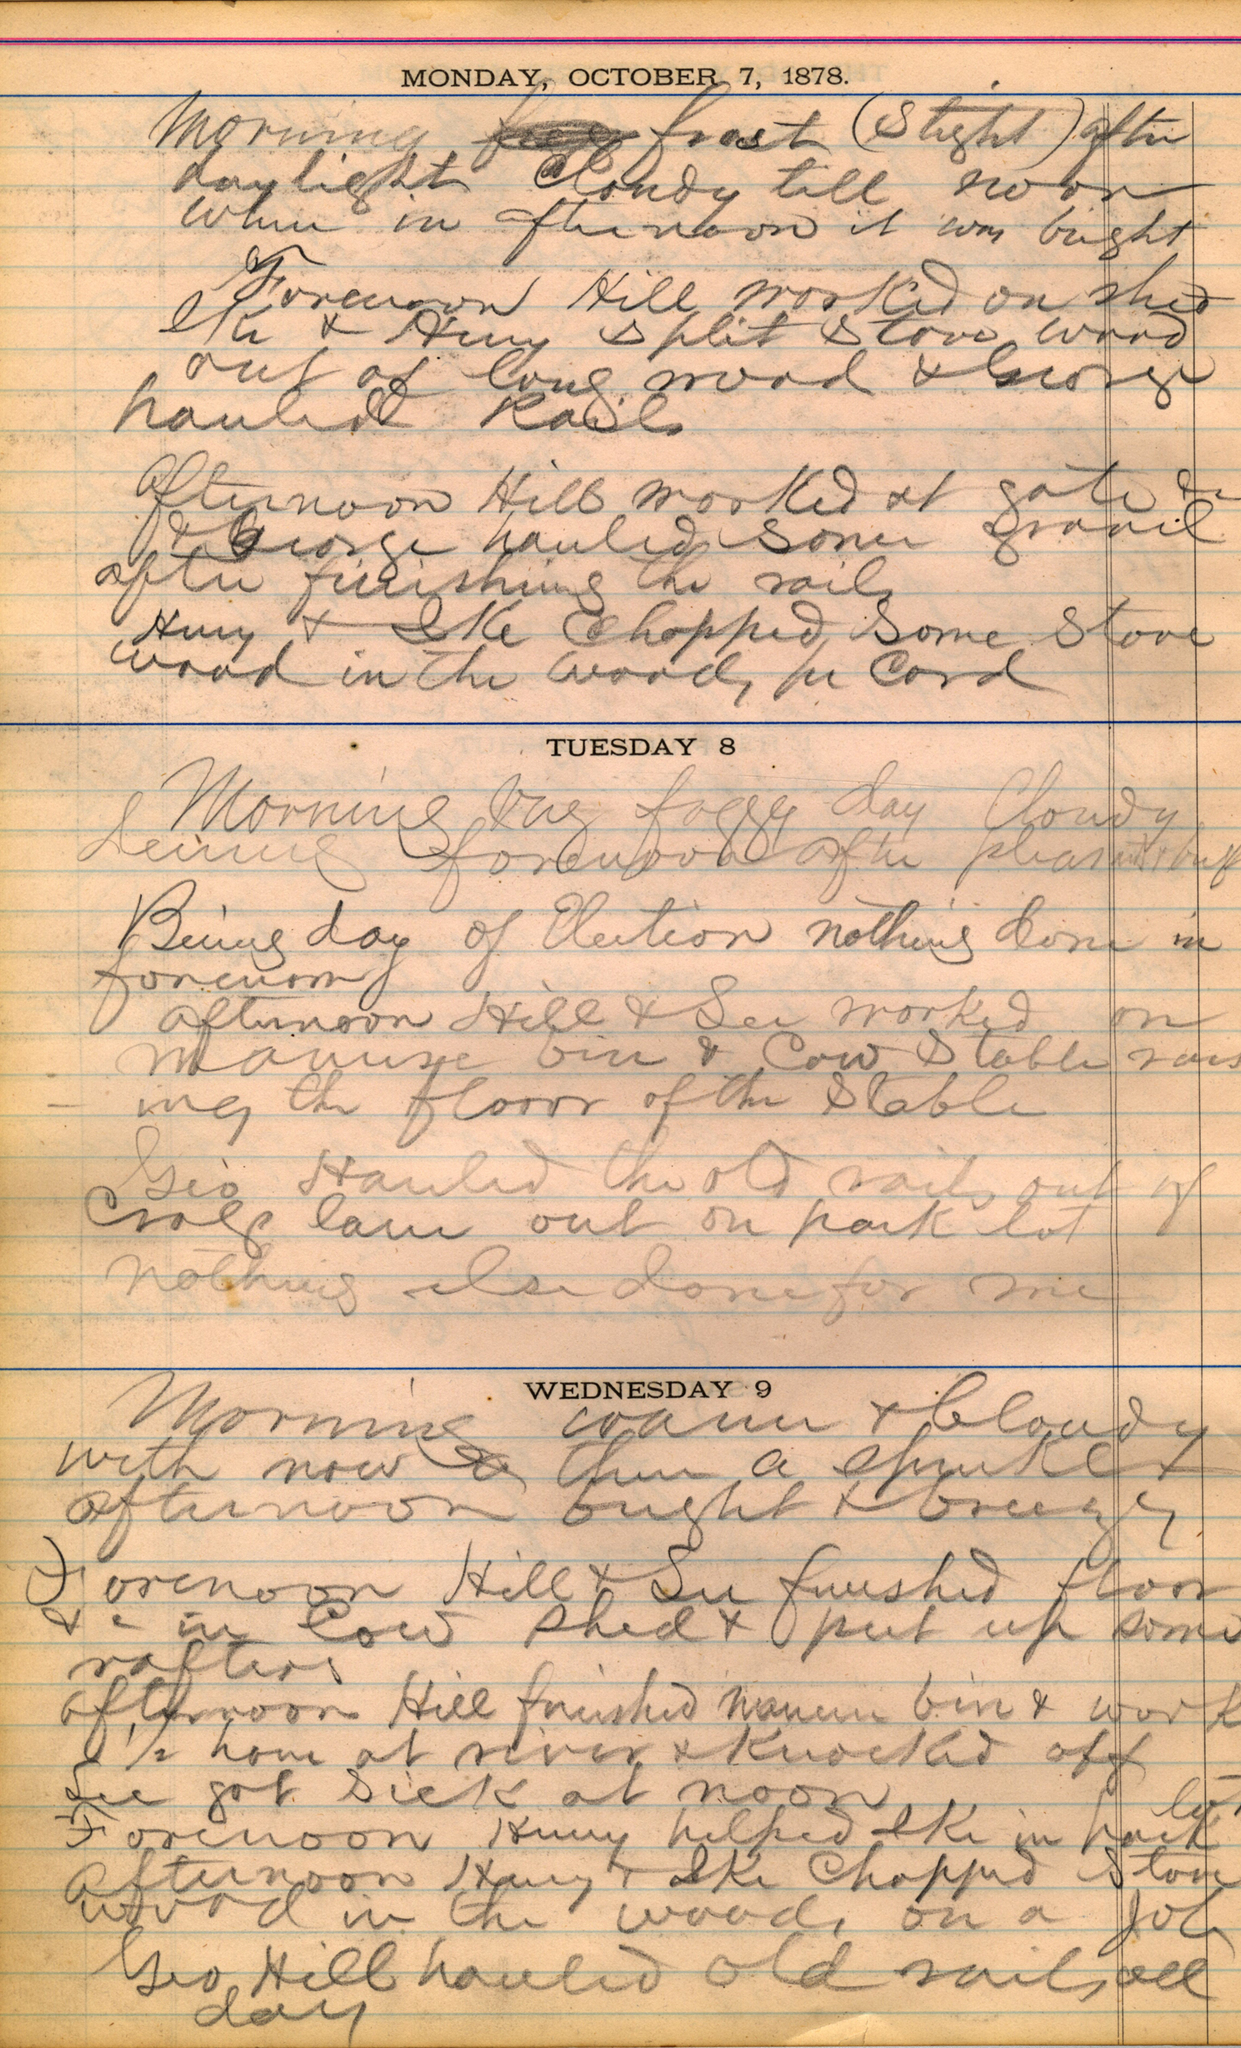 MONDAY, OCTOBER 7, 1878.
Morning frost (Slight) after
daylight Cloudy till noon
when in afternoon it was bright
Forenoon Hill worked on shed
Ike & Henry Split Stove wood
out of long wood & George
hauled Rails
Afternoon Hill worked at gate &c
& George hauled Some gravil
after finishing the rails
Henry & Ike Chopped Some Stove
wood in the woods per Cord
TUESDAY 8
Morning very foggy day Cloudy
during forenoon after pleasant &
Being day of Election nothing done in
forenoon
afternoon Hill & Lee worked on
Manure bin & Cow Stable rais
ing the floor of the Stable
Geo Hauled the old rails out of
lane out on park lot
Nothing else done for me
WEDNESDAY 9
Morning warm & Cloudy
with now & then a sprinkle &
afternoon bright & breezy
Forenoon Hill & Lee finished floor
&c in Cow Shed & put up some
rafters
afternoon Hill finished manure bin & work
1/2 hour at river & Knocked off
Lee got Sick at noon
Forenoon Henry helped Ike in park lot
Afternoon Henry & Ike Chopped Stove
wood in the woods on a Job
Geo Hill hauled old rails all
day